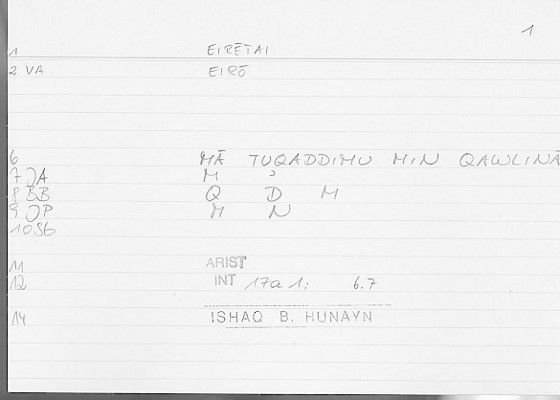 1
1 EIRĒTAI
2 VA EIRŌ
6 MĀ TUQADDIMU MIN QAWLINĀ
7 JA M ʾ
8 BB Q D M
9 JP M N
10 SG
11 ARIST
12 INT 17a 1: 6.7
14 ISHAQ B. HUNAYN